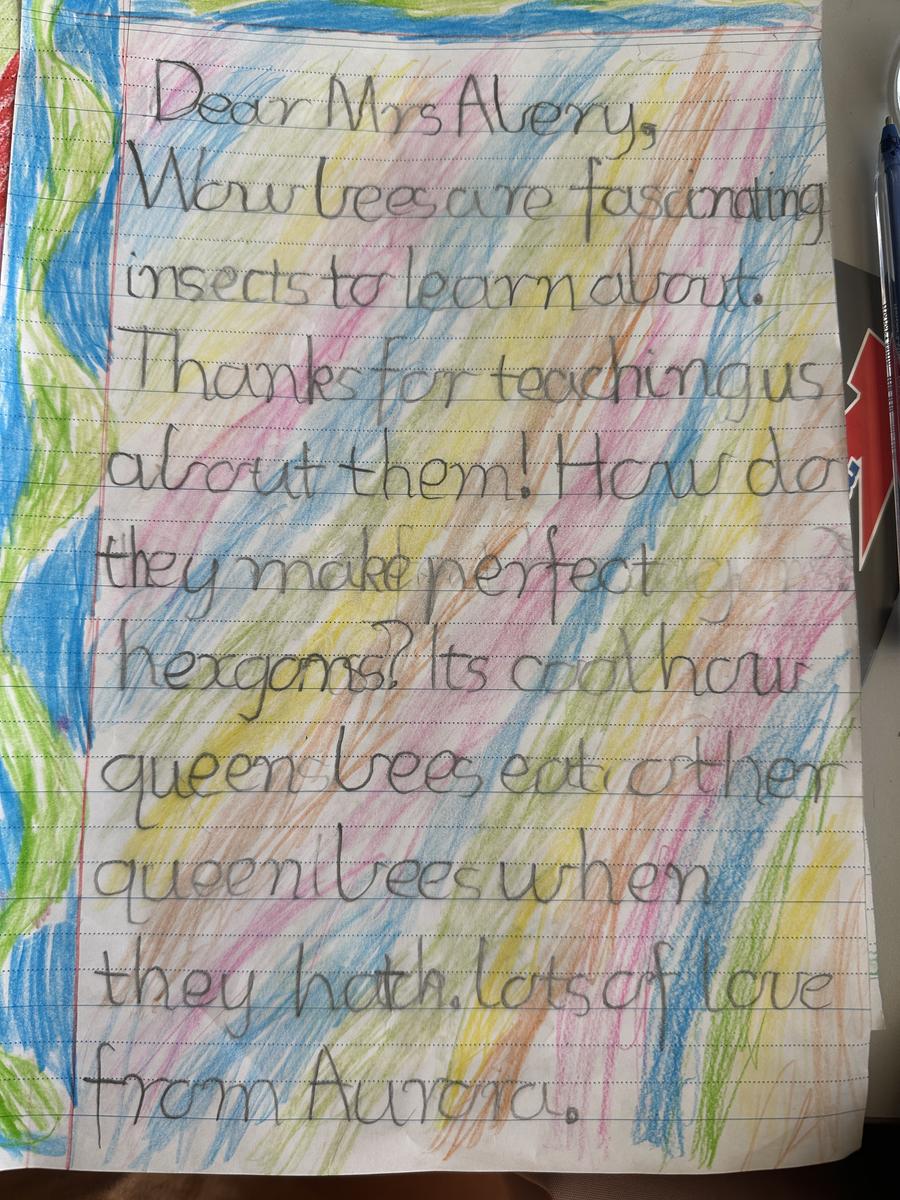 Dear Mrs Avery,
Wow bees are fascinating
insects to learn about.
Thanks for teaching us
about them! How do
they make perfect
hexgons? Its cool how
queen bees eat other
queen bees when
they hatch. lots of love
from Aurora.